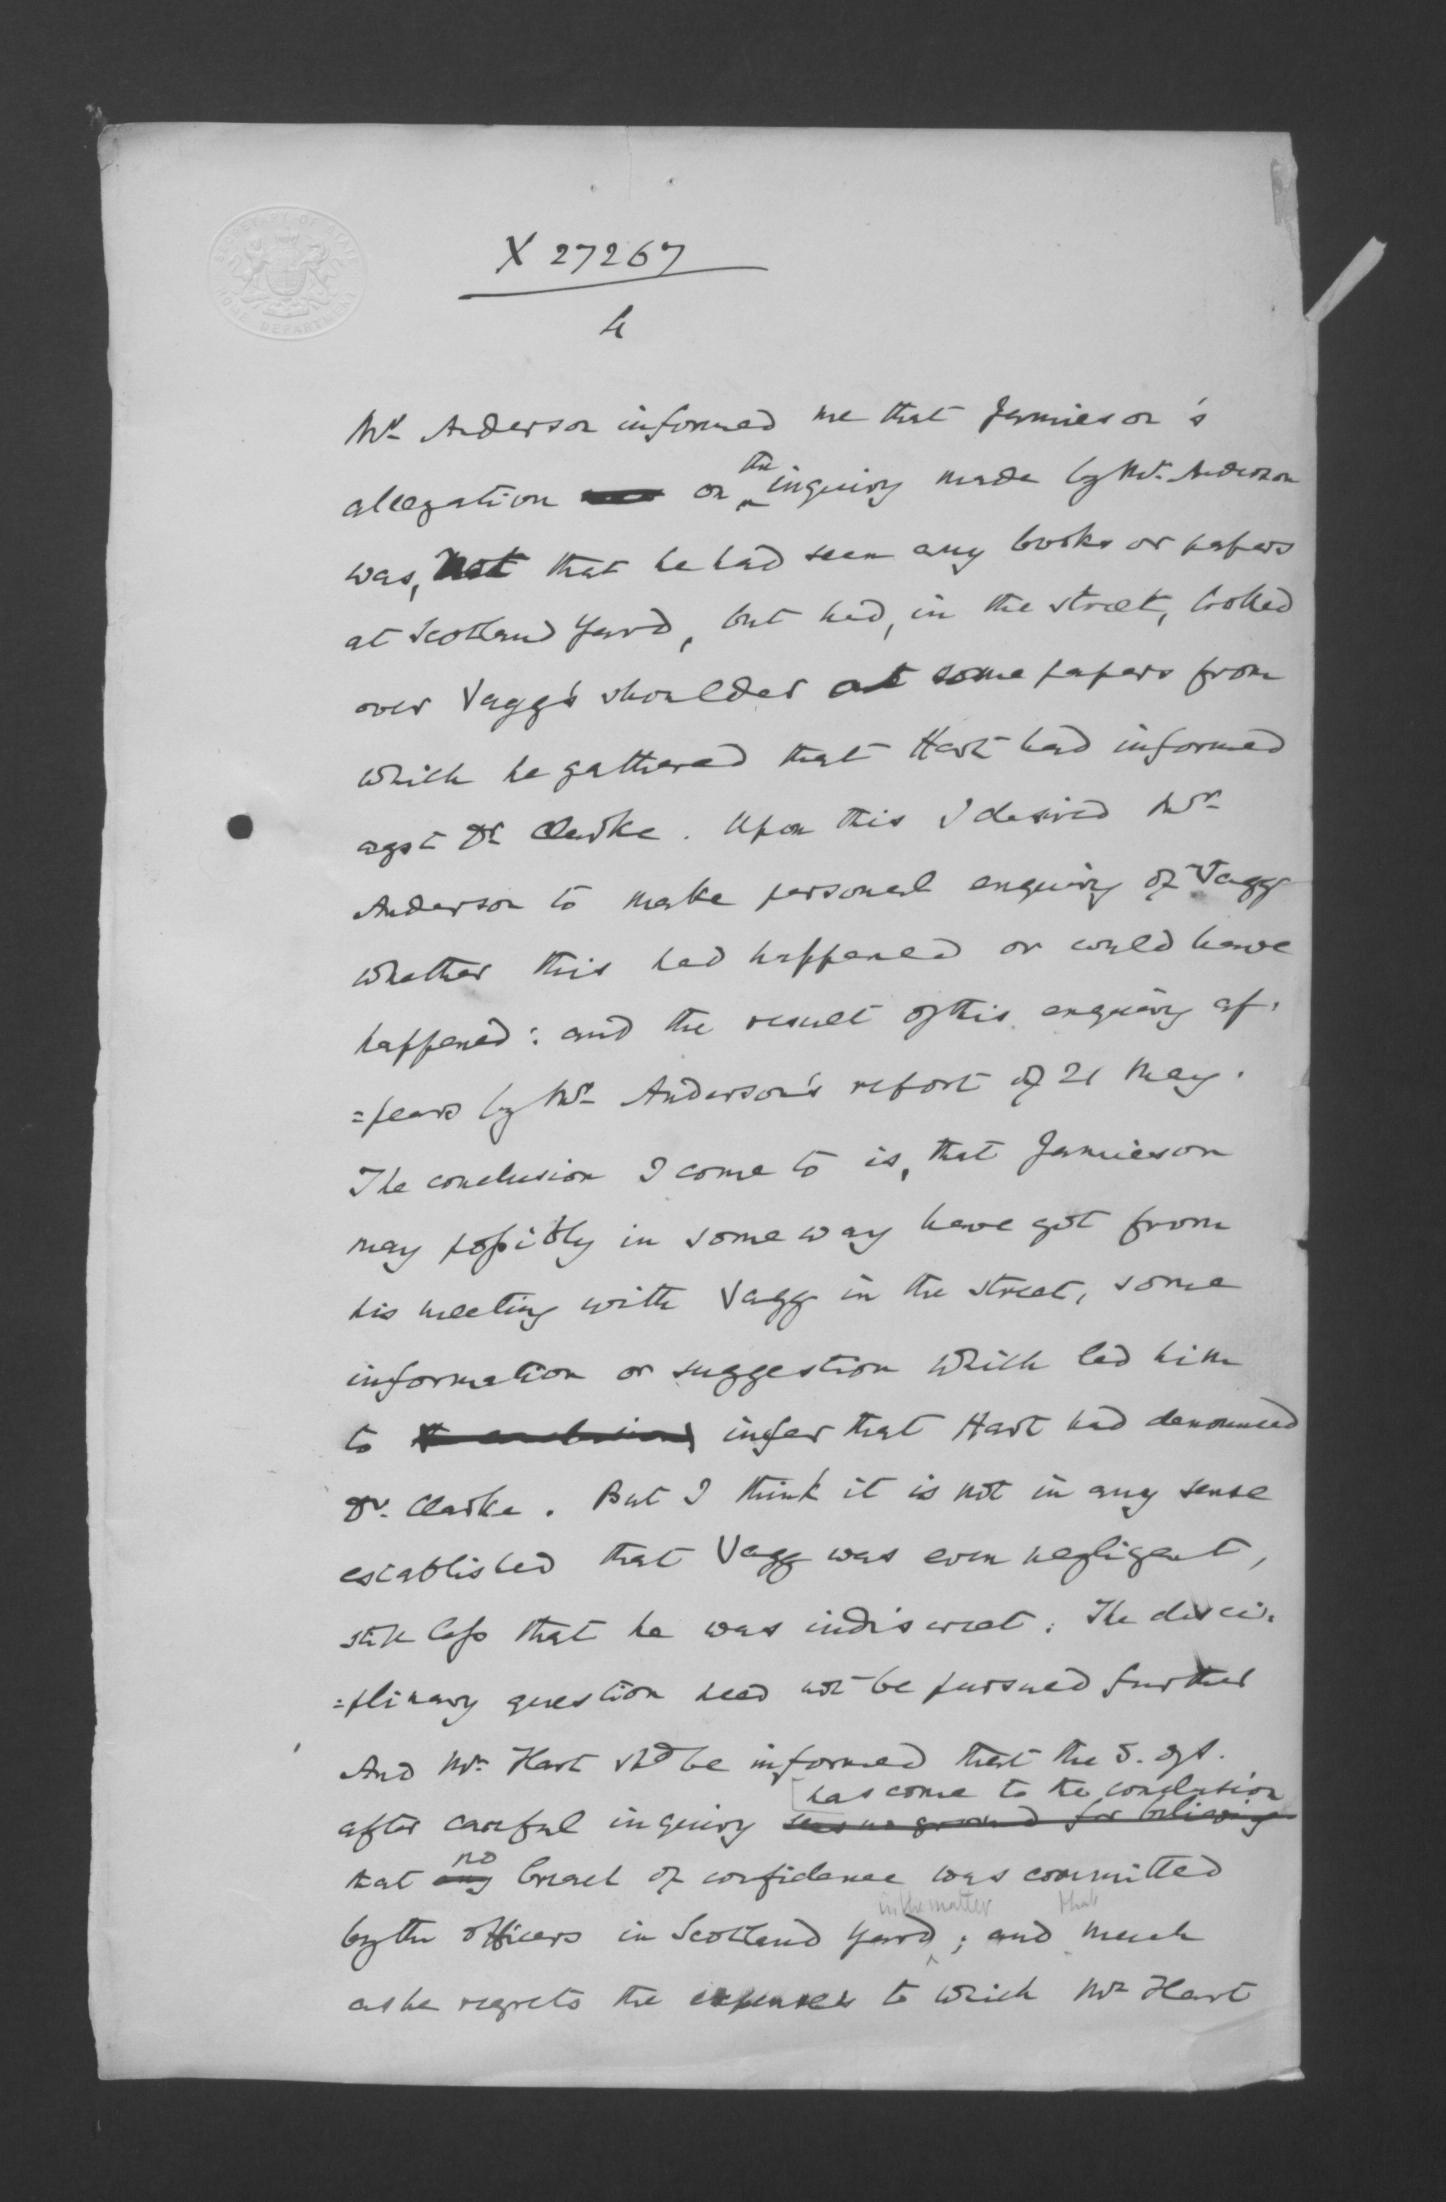 SECRETARY OF STATE
HOME DEPARTMENT
X 27267
4
Mr. Anderson informed me that Jamieson's
allegation on the inquiry made by Mr. Anderson
was, not that he had seen any books or papers
at Scotland Yard, but had, in the street, looked
over Vagg's shoulder at some papers from
which he gathered that Hart had informed
agst Dr Clarke. Upon this I desired Mr
Anderson to make personal enquiry of Vagg
whether this had happened or could have
happened: and the result of this enquiry ap=
=pears by Mr Anderson's report of 21 May.
The conclusion I come to is, that Jamieson
may possibly in some way have got from
his meeting with Vagg in the street, some
information or suggestion which led him
to infer that Hart had denounced
Dr. Clarke. But I think it is not in any sense
established that Vagg was even negligent,
still less that he was indiscreet. The disci=
=plinary question need not be pursued further
And Mr Hart shd be informed that the S. of S.
has come to the conclusion
after careful inquiry sees no ground for believing
that any no breach of confidence was committed
in the matter that
by the officers in Scotland Yard; and much
as he regrets the expenses to which Mr Hart